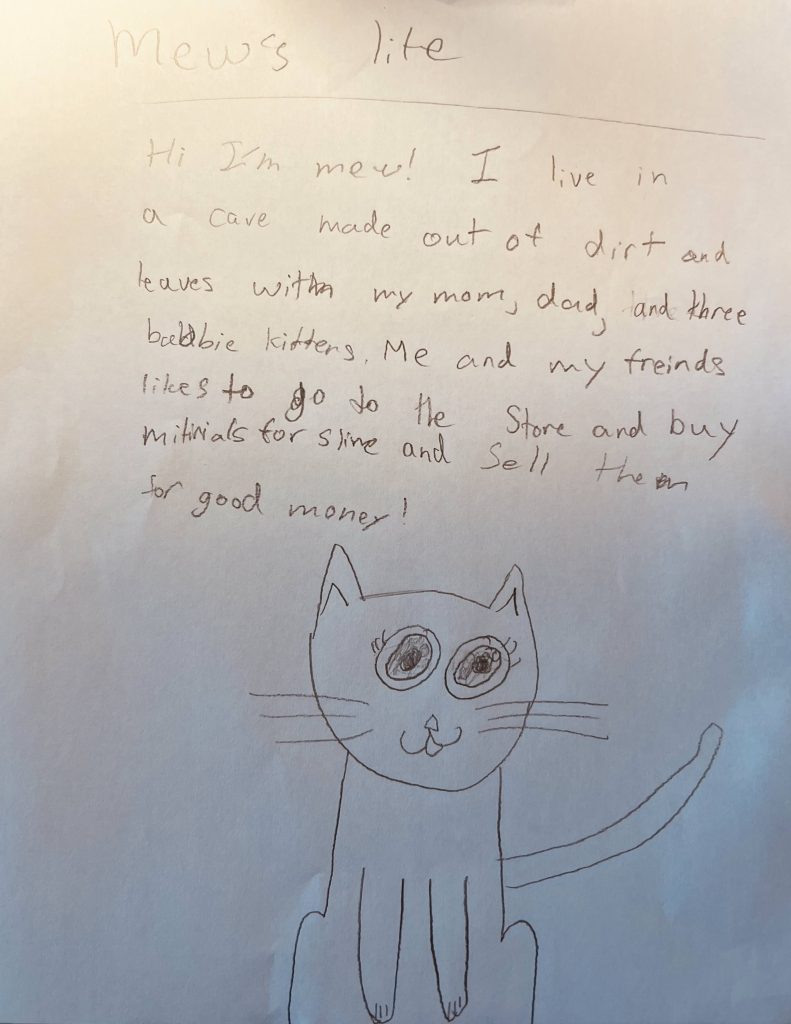 Mew's life
Hi I'm mew! I live in
a cave made out of dirt and
leaves with my mom, dad, and three
babbie kittens. Me and my freinds
likes to go to the Store and buy
mitirials for slime and Sell them
for good money!